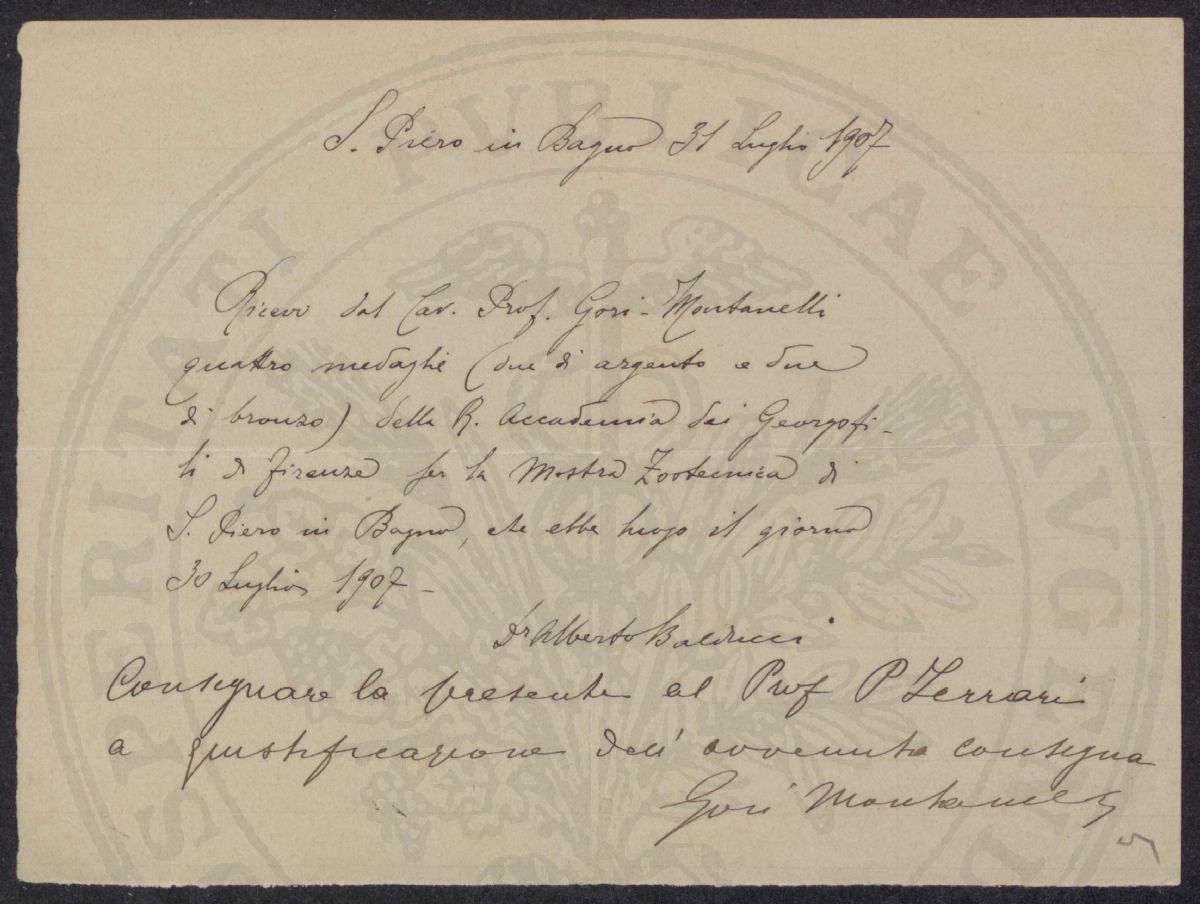 S. Piero in Bagno 31 Luglio 1907
Ricevo dal Cav. Prof. Gori-Montanelli
quattro medaglie (due di argento e due
di bronzo) della R. Accademia dei Georgofi-
li di Firenze per la Mostra Zootecnica di
S. Piero in Bagno, che ebbe luogo il giorno
30 Luglio 1907-
Dr Alberto Balducci
Consegnare la presente al Prof P Ferrari
a giustificazione dell' avvenuta consegna
Gori Montanelli
PROSPERITATI PVBLICAE AVGENDAE